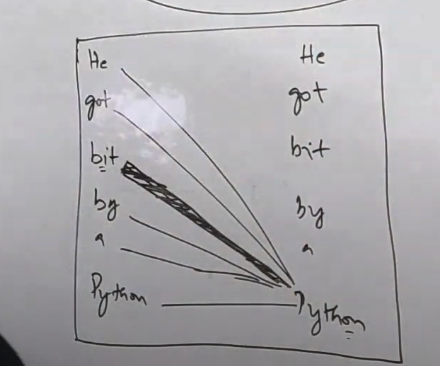 He He
got got
bit bit
by by
a a
Python Python